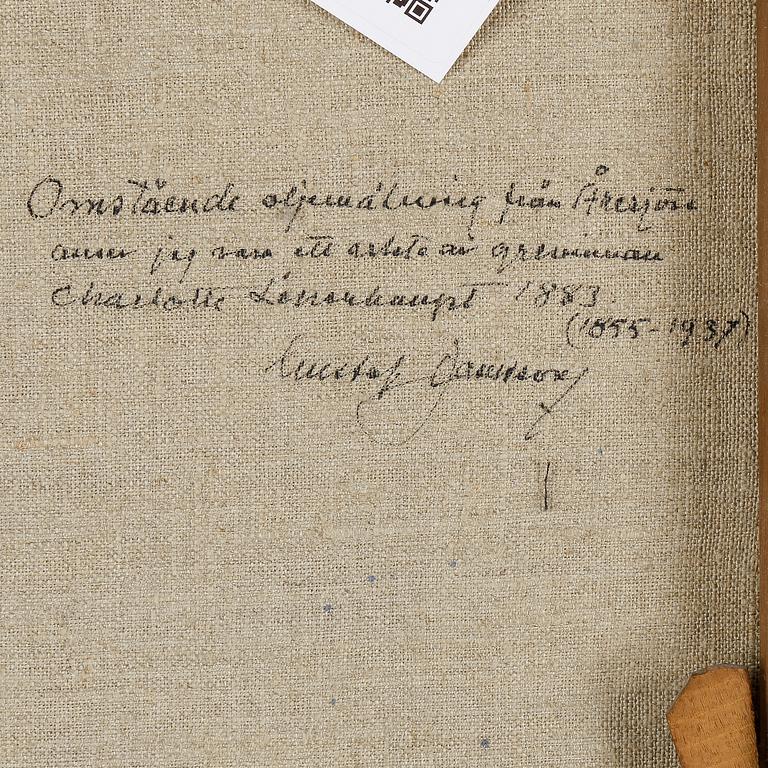 Omstående oljemålning från Åresjön
anser jag vara ett arbete av grevinnan
Charlotte Lewenhaupt 1883.
(1855-1937)
Gustaf